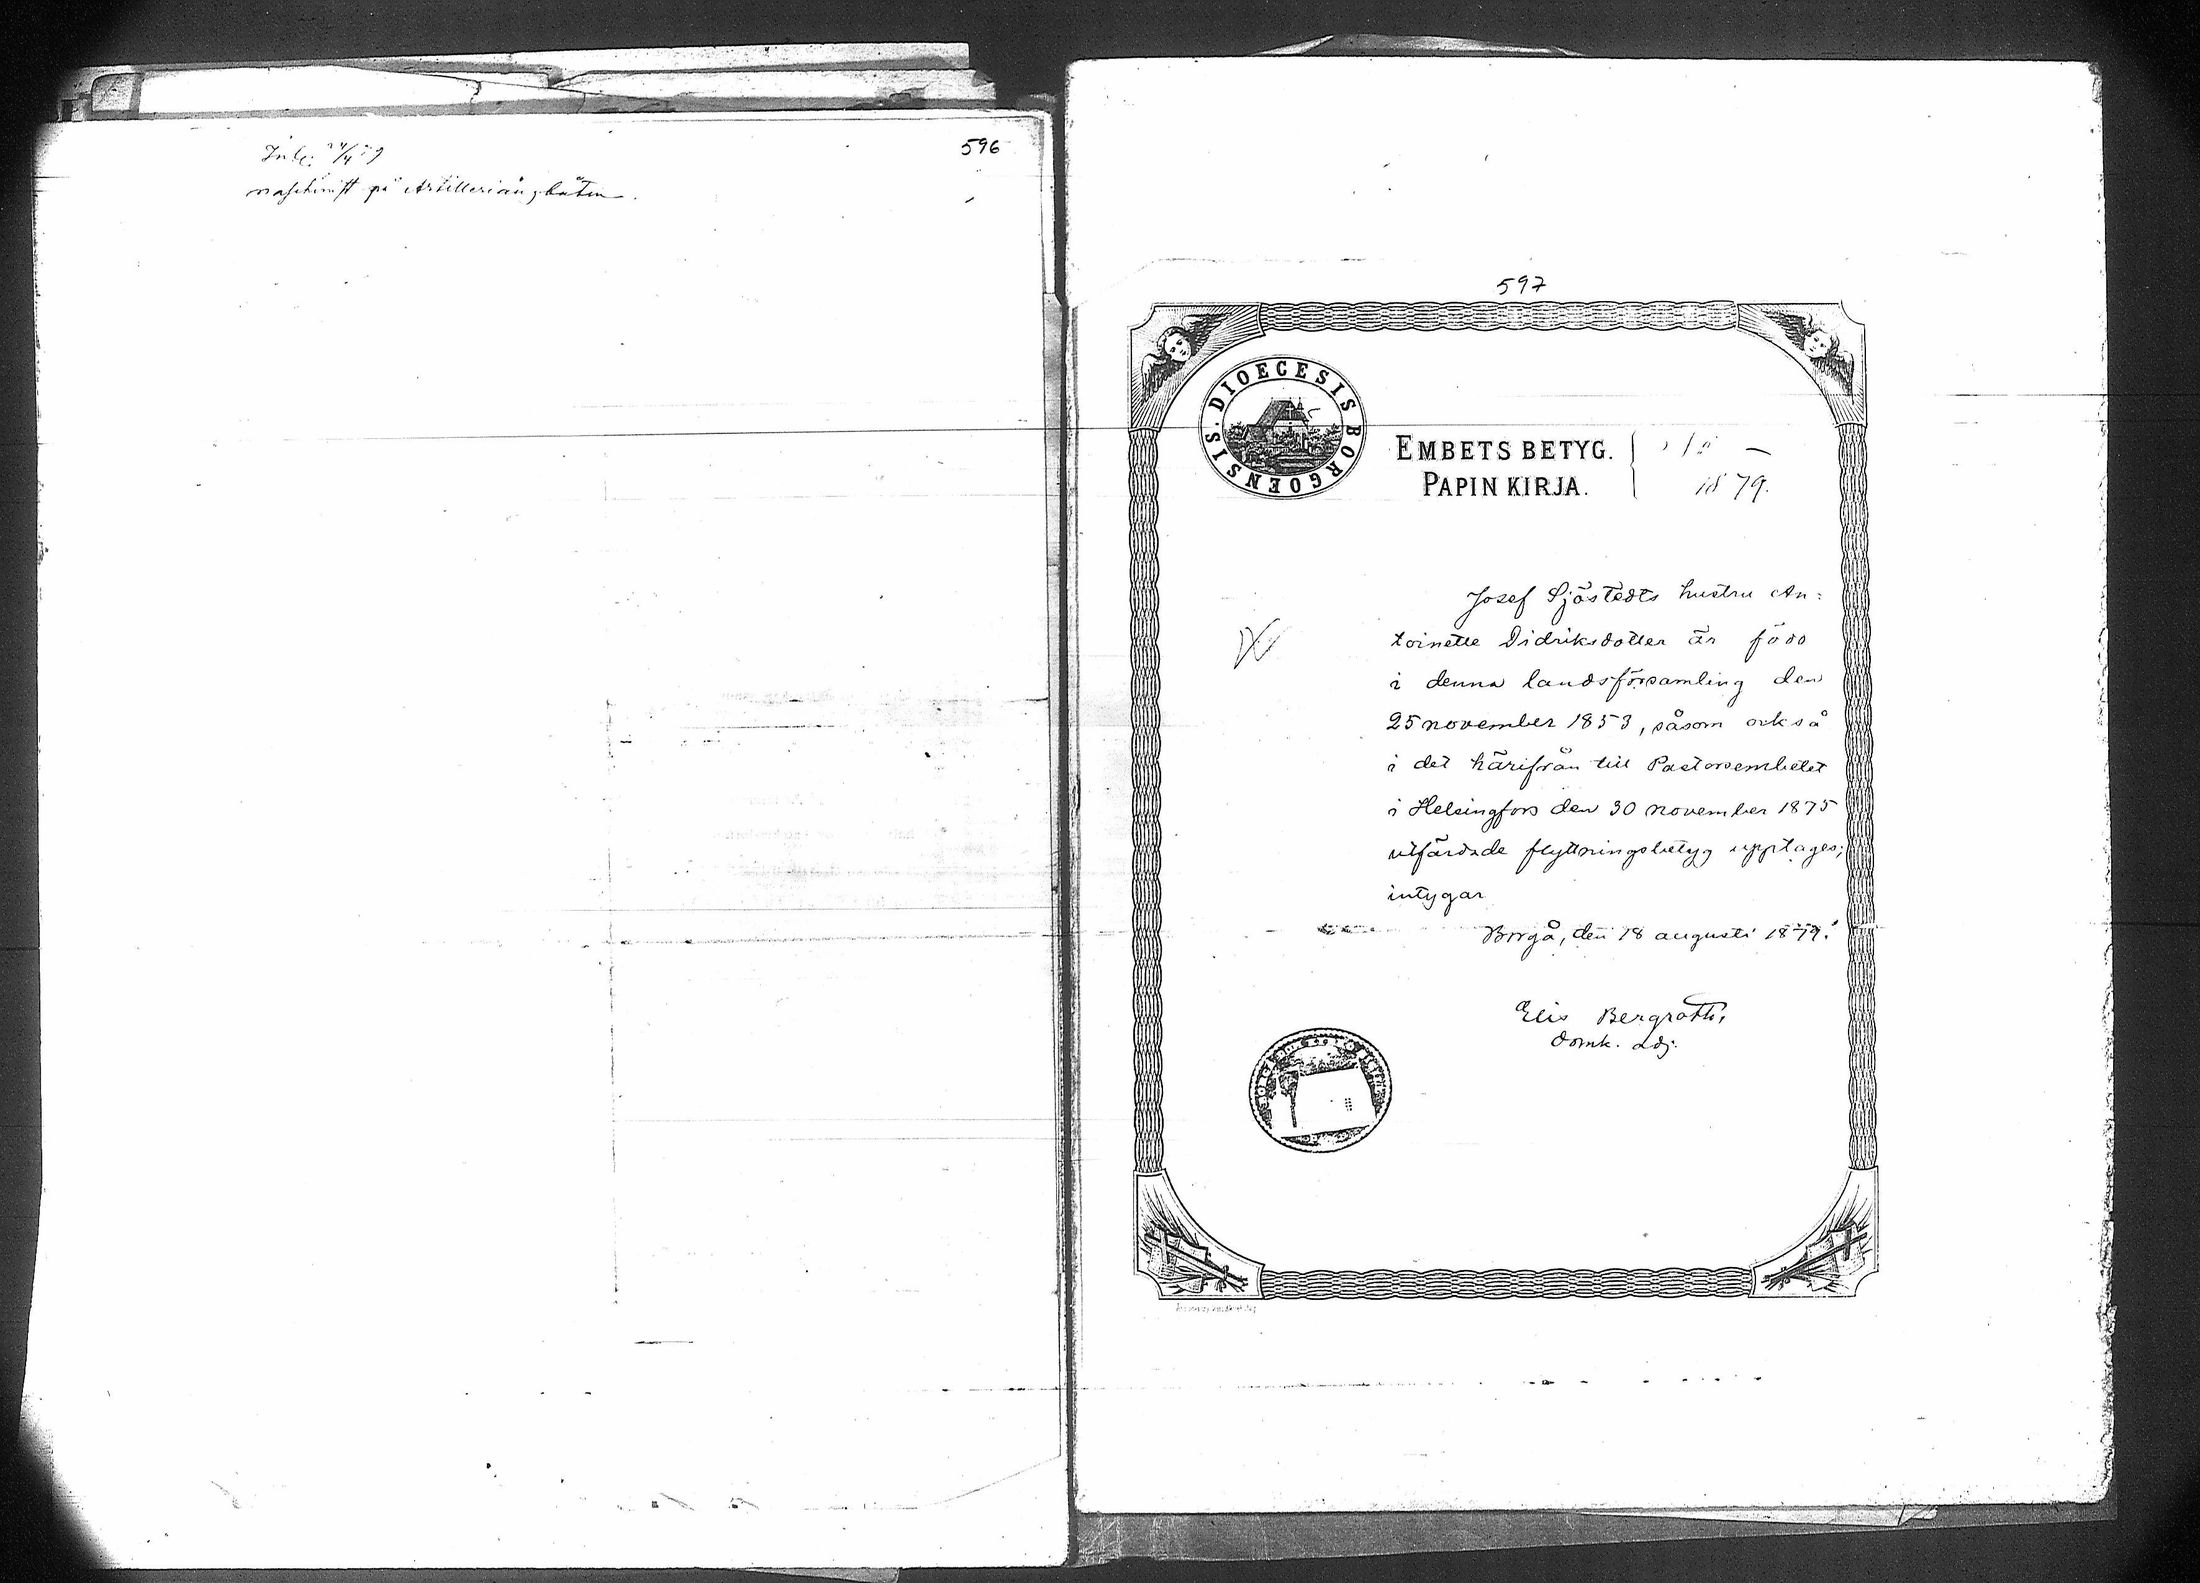 596
Inl. 24/4 79
maschinist på Artilleriångbåten.
597
DIOECESIS BORGOENSIS.
EMBETS BETYG.
PAPIN KIRJA.
1879.
Josef Sjöstedts hustru An=
toinette Didriksdotter är född
i denna landsförsamling den
25 november 1853, såsom också
i det härifrån till Pastorsembetet
i Helsingfors den 30 november 1875
utfärdade flyttningsbetyg upptages;
intygar
Borgå, den 18 augusti 1879.
Elis Bergroth,
domk. adj.